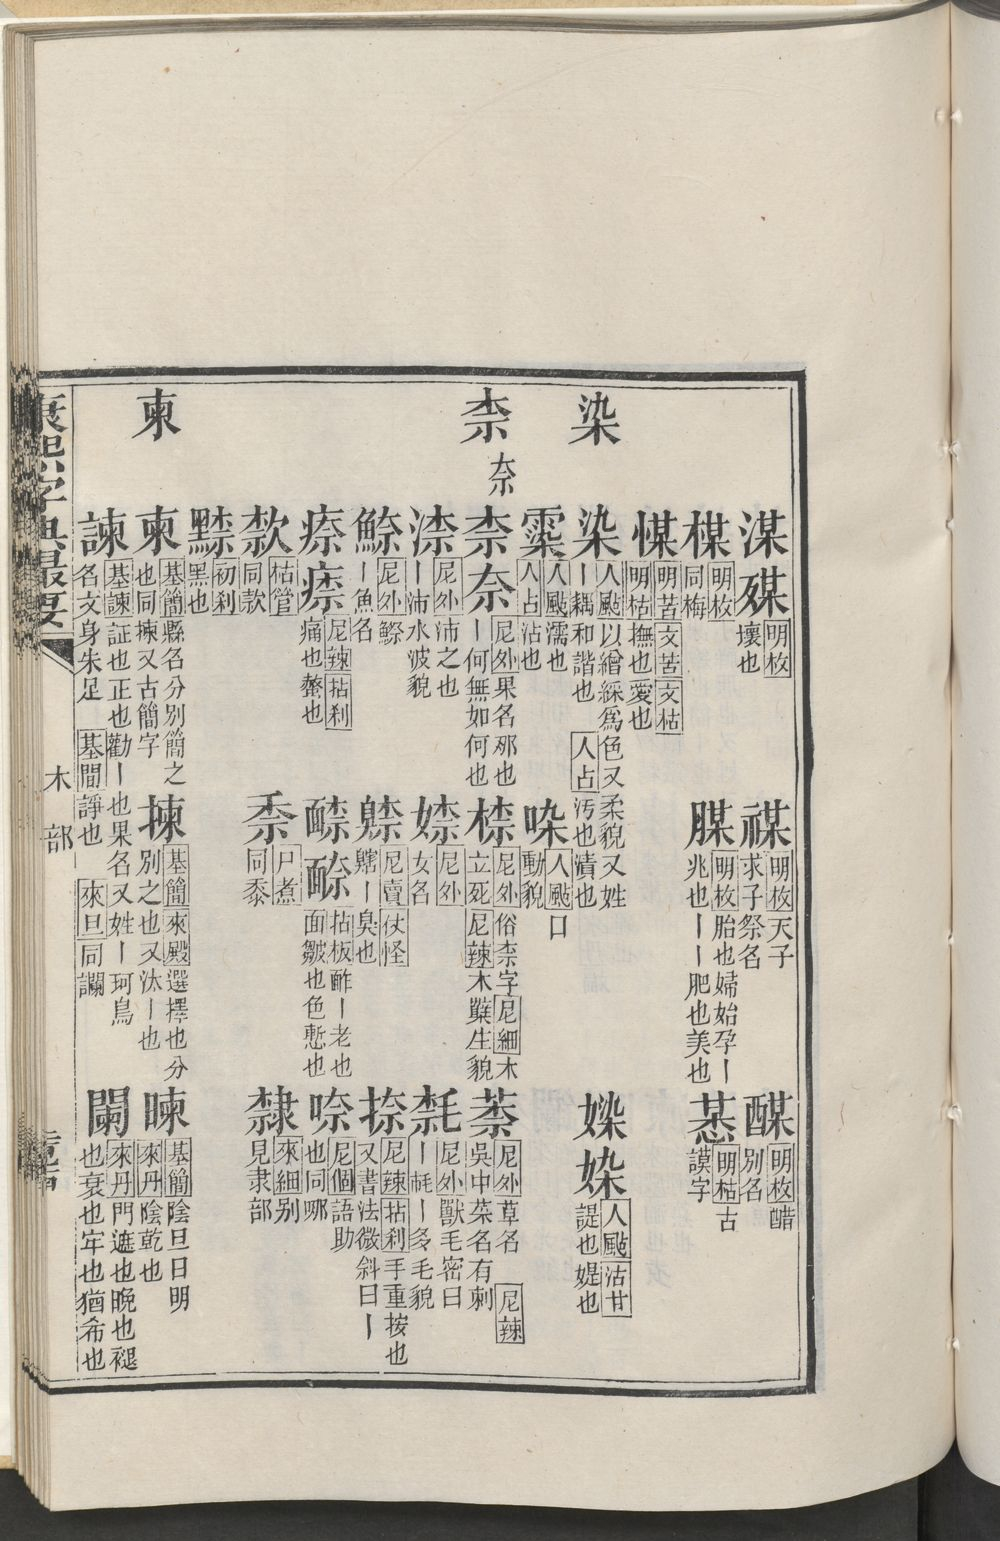 染
柰
奈
柬
湈 𣨰 明枚 壞也
禖 明枚 天子求子祭名
醾 明枚 醋別名
楳 明枚 同梅
腜 明枚 胎也婦始孕丨兆也丨丨肥也美也
惎 明枯 古謨字
㥈 明苦 文苦 文枯 明枯 撫也愛也
染 人颭 以繒綵爲色又柔貌又姓丨耦和諧也 人占 汚也漬也
媣 㚩 人颭 沾甘 諟也媞也
霂 人颭 濡也 人占 沾也
㗅 人颭 口動貌
柰 奈 尼外 果名那也丨何無如何也
㮏 尼外 俗柰字 尼細 木立死 尼辣 木櫱生貌
萘 尼外 草名 尼辣 吳中菜名有刺
渿 尼外 沛之也丨沛水波貌
㜨 尼外 女名
𣯍 尼外 獸毛密曰丨㲝丨多毛貌
鮛 尼外 鰶丨魚名
尼賣 仗怪 䠽丨臭也
捺 尼辣 拈利 手重按也又書法微斜曰丨
瘵 尼辣 拈刹 痛也螫也
拈板 酢丨老也面皺也色慙也
㖠 尼個 語助也同哪
款 枯管 同款
𥝩 尸煮 同黍
隸 來細 别見隶部
初刹 黑也
柬 基簡 縣名分別簡之也同揀又古簡字
揀 基簡 來殿 選擇也分別之也又汰丨也
暕 基簡 陰旦日明 來丹 陰乾也
諫 基諫 証也正也勸丨也果名又姓丨珂鳥名文身朱足 基間 諍也 來旦 同讕
闌 來丹 門遮也晚也褪也衰也牢也猶希也
康熙字典最要
木部